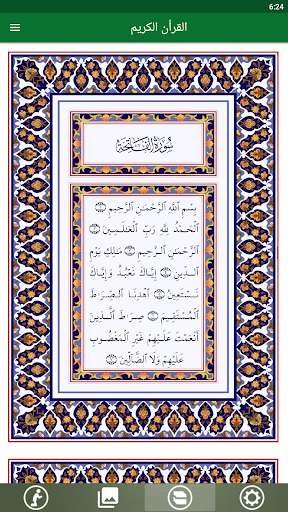 6:24
القرأن الكريم
سُورَةُ الفَاتِحَةِ
بِسْمِ ٱللَّهِ ٱلرَّحْمَٰنِ ٱلرَّحِيمِ ۝
ٱلْحَمْدُ لِلَّهِ رَبِّ ٱلْعَٰلَمِينَ ۝
ٱلرَّحْمَٰنِ ٱلرَّحِيمِ ۝ مَٰلِكِ يَوْمِ
ٱلدِّينِ ۝ إِيَّاكَ نَعْبُدُ وَإِيَّاكَ
نَسْتَعِينُ ۝ ٱهْدِنَا ٱلصِّرَٰطَ
ٱلْمُسْتَقِيمَ ۝ صِرَٰطَ ٱلَّذِينَ
أَنْعَمْتَ عَلَيْهِمْ غَيْرِ ٱلْمَغْضُوبِ
عَلَيْهِمْ وَلَا ٱلضَّآلِّينَ ۝